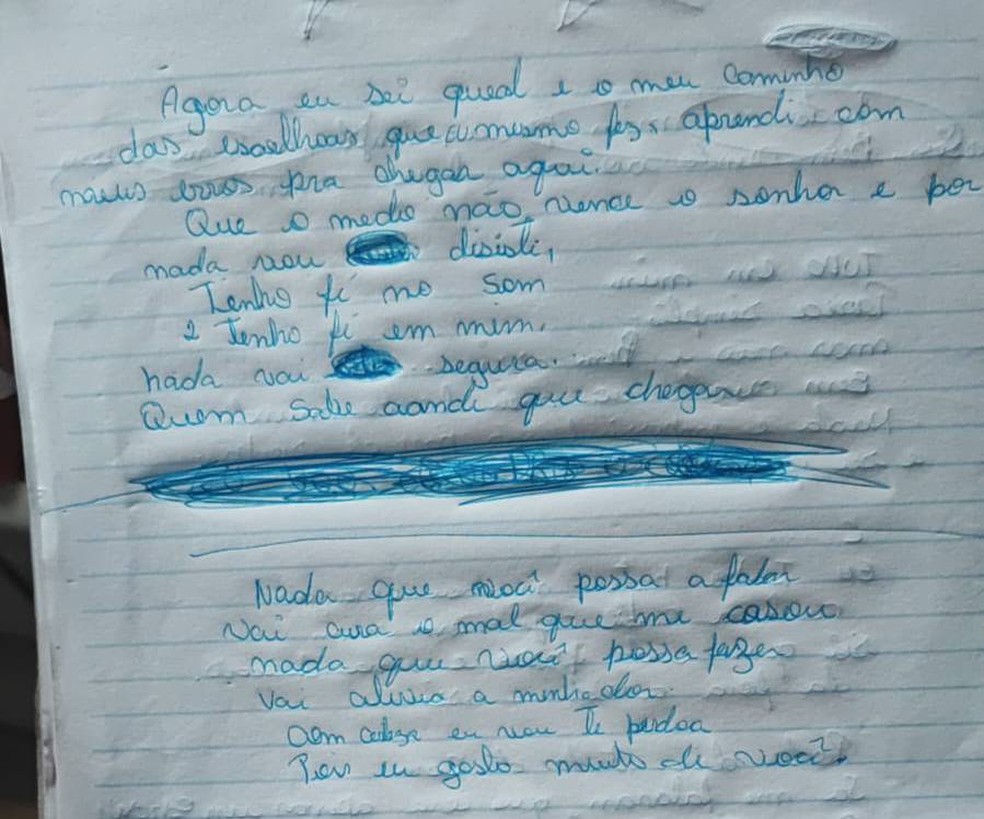 Agora eu sei queal e o meu Caminho
das escelhoas que eu mesmo fez, aprendi com
meus erros pra chegar aqui.
Que o medo não vence o sonho e por
nada vou disisti,
Tenho fé no Som
2 Tenho fé em mim,
nada vai segura.
Quem Sabe aondi que chegar
Nada que você possa a falar
Vai cura o mal que me casou
nada que você possa fazer
Vai alivia a minha dor.
com certeza eu vou Te perdoa
Pois eu gosto muito de você.